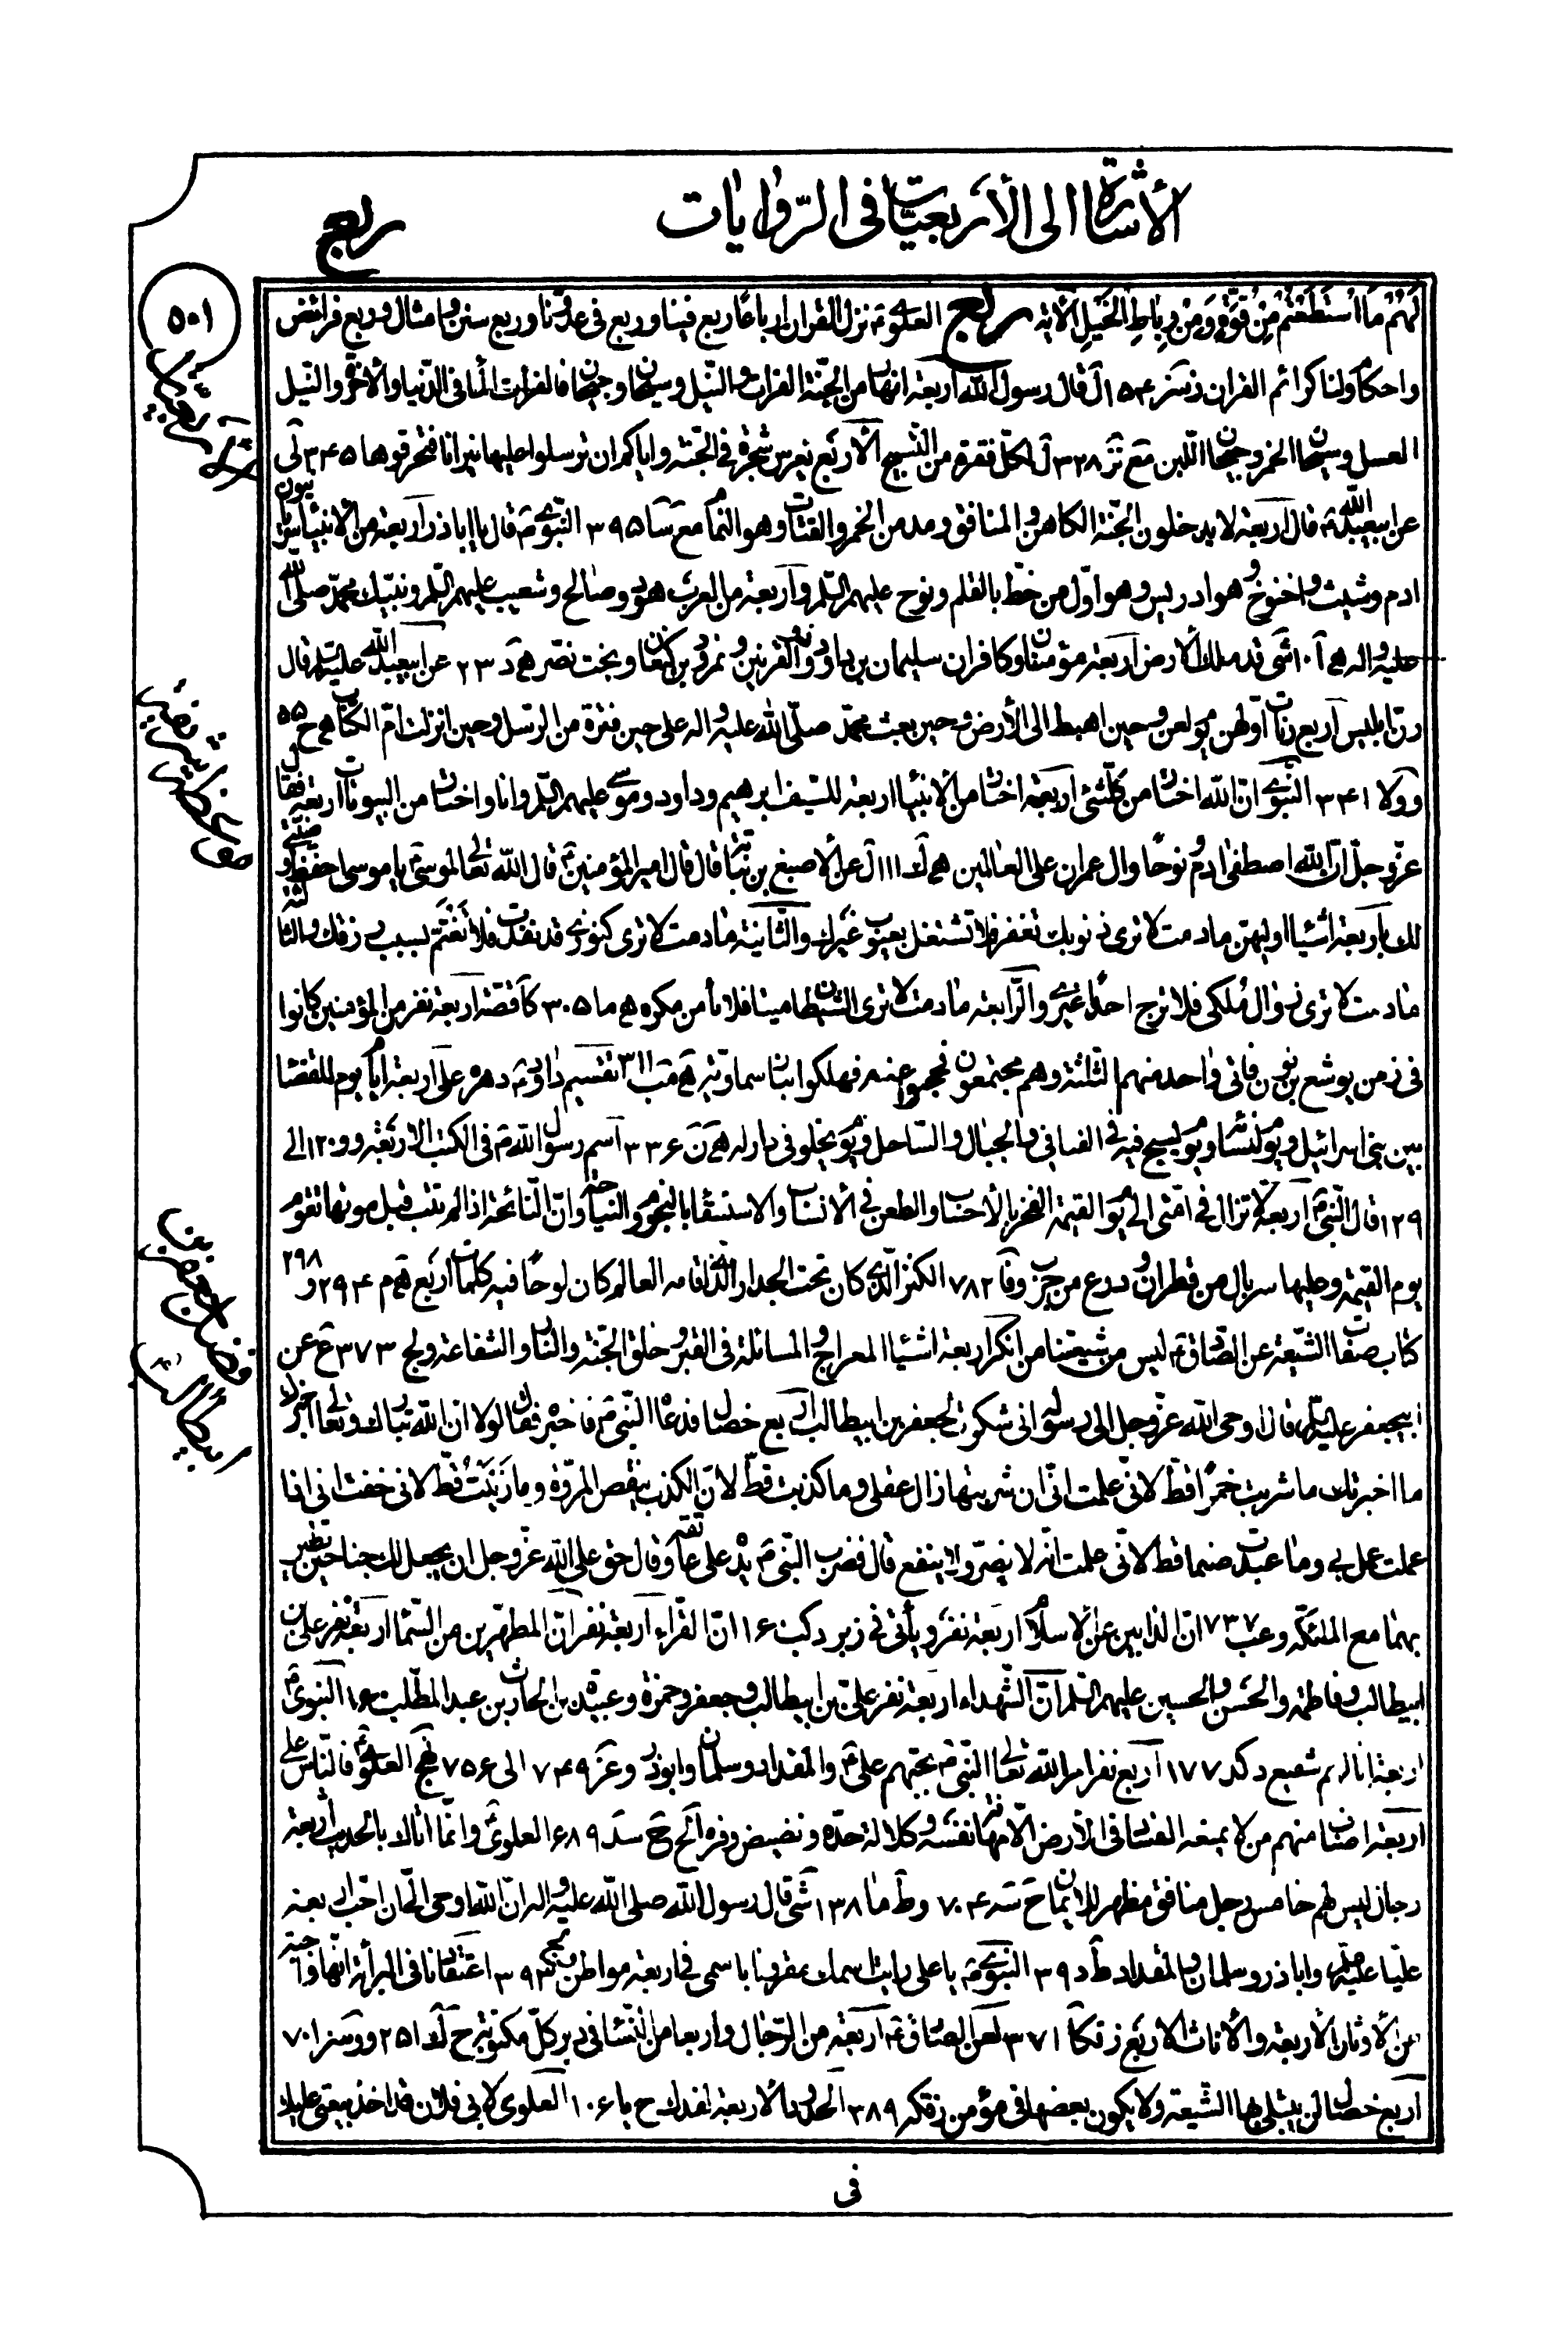 الأشارة الى الأربعيّات فى الرّوايات
ربع
٥٠١
لَهُمْ مَا اسْتَطَعْتُمْ مِنْ قُوَّةٍ وَمِنْ رِبَاطِ الْخَيْلِ الآية ربع العلوى نزل القران ارباعا ربع فينا وربع فى عدونا وربع سنن وامثال وربع فرائض
واحكام ولنا كرائم القران ١٥٤ ل قال رسول الله اربعة انهار من الجنة الفرات والنيل وسيحان وجيحان فالفرات الماء فى الدنيا والأخرة والنيل
العسل وسيحان الخمر وجيحان اللبن مع ٣٢٨ ل لكل فقرة من التسبيح الأربع يغرس شجرة فى الجنة واياكم ان ترسلوا عليها نيرانا فتحرقوها ٣٤٥
عن ابيعبد الله قال اربعة لا يدخلون الجنة الكاهن والمنافق ومدمن الخمر والقتات وهو النمام ٣٩٥ النبوى قال يا اباذر اربعة من الأنبياء سريانيون
ادم وشيث واخنوخ وهو ادريس وهو اول من خط بالقلم ونوح عليهم السلم واربعة من العرب هود وصالح وشعيب عليهم السلم ونبيك محمد صلى الله
عليه واله ملك الأرض اربعة مؤمنان وكافران سليمان بن داود وذو القرنين ونمرود بن كنعان وبخت نصر ٢٣ عن ابيعبد الله عليه السلم قال
رن ابليس اربع رنات اولهن يوم لعن وحين اهبط الى الأرض وحين بعث محمد صلى الله عليه واله على حين فترة من الرسل وحين انزلت ام الكتاب ٥٥
٣٤١ النبوى ان الله اختار من كلشئ اربعة اختار من الأنبياء اربعة للسيف ابرهيم وداود وموسى عليهم السلم وانا واختار من البيوتات اربعة فقال
عز وجل ان الله اصطفى ادم ونوحا وال عمران على العالمين ١١١ ل عن الأصبغ بن نباتة قال قال امير المؤمنين قال الله تعالى لموسى يا موسى احفظ وصيتى
لك باربعة اشياء اوليهن ما دمت لا ترى ذنوبك تغفر فلا تشتغل بعيوب غيرك والثانية ما دمت لا ترى كنوزى قد نفدت فلا تغتم لسبب رزقك والثالثة
ما دمت لا ترى زوال ملكى فلا ترج احدا غيرى والرابعة ما دمت لا ترى الشيطان ميتا فلا تأمن مكره ٣٠٥ قصة اربعة نفر من المؤمنين كانوا
فى زمن يوشع بن نون فاتى واحد منهم الثلثة وهم مجتمعون فحجبوا عنه فهلكوا بنار سماوية ٣١١ تقسيم داود دهره على اربعة ايام يوم للقضاء
بين بنى اسرائيل ويوم لنسائه ويوم يسبح فيه فى الفيافى والجبال والساحل ويوم يخلو فى دار له ٣٣٦ اسم رسول الله فى الكتب الاربعة ١٢٠ الى
١٢٩ قال النبى اربعة لا تزال فى امتى الى يوم القيمة الفخر بالأحساب والطعن فى الأنساب والاستسقاء بالنجوم والنياحة وان النائحة اذا لم تتب قبل موتها تقوم
يوم القيمة وعليها سربال من قطران ودرع من جرب وفا ٧٨٢ الكنز الذى كان تحت الجدار الذى اقامه العالم كان لوحا فيه كلمات اربع ٢٩٤ و ٢٩٨
كتاب صفات الشيعة عن الصادق ليس من شيعتنا من انكر اربعة اشياء المعراج والمسائلة فى القبر وخلق الجنة والنار والشفاعة ٣٧٣ ع عن
ابيجعفر عليه السلم قال اوحى الله عز وجل الى رسوله انى شكرت لجعفر بن ابيطالب اربع خصال فدعاه النبى فاخبره فقال لولا ان الله تبارك وتعالى اخبرك
ما اخبرتك ما شربت خمرا قط لانى علمت انى ان شربتها زال عقلى وما كذبت قط لان الكذب ينقص المروة وما زنيت قط لانى خفت انى اذا
عملت عمل بى وما عبدت صنما قط لانى علمت انه لا يضر ولا ينفع قال فضرب النبى يده على عاتقه وقال حق على الله عز وجل ان يجعل لك جناحين تطير
بهما مع الملئكة ٧٣٧ ان الذابين عن الاسلام اربعة نفر ويأتى فى زبر ١٦ ان القراء اربعة نفر ان المطهرين من السماء اربعة نفر على بن
ابيطالب وفاطمة والحسن والحسين عليهم السلم ان الشهداء اربعة نفر على بن ابيطالب وجعفر وحمزة وعبيدة بن الحارث بن عبد المطلب النبوى
اربعة انا لهم شفيع ١٧٧ اربع نفر امر الله تعالى النبى بحبهم على والمقداد وسلمان وابوذر ٧٤٩ الى ٧٥٦ نهج العلوى فالناس على
اربعة اصناف منهم من لا يمنعه الفساد فى الأرض الا مهانة نفسه وكلالة حده ونضيض وفره الخ ٦٨٩ العلوى وانما اتاك بالحديث اربعة
رجال ليس لهم خامس رجل منافق مظهر للايمان ٧٠٤ ١٣٨ قال رسول الله صلى الله عليه واله ان الله اوحى الى ان احب اربعة
عليا عليه السلم واباذر وسلمان والمقداد ٣٩ النبوى يا على رايت اسمك مقرونا باسمى فى اربعة مواطن ٣٩٣ اعتقادنا فى البرائة انها واجبة
من الأوثان الأربعة والأناث الاربع ٣٧١ لعن الصادق اربعة من الرجال واربعا من النساء فى دبر كل مكتوبة ٢٥١ ٧٠١
اربع خصال لن يبتلى بها الشيعة ولا يكون بعضها فى مؤمن ٣٨٩ الحدود الأربعة لفدك ١٠٦ العلوى لابى فلان قد اخذ بيعتى عليك
موعظة شريفة
فضائل جعفر بن
ابيطالب
فى